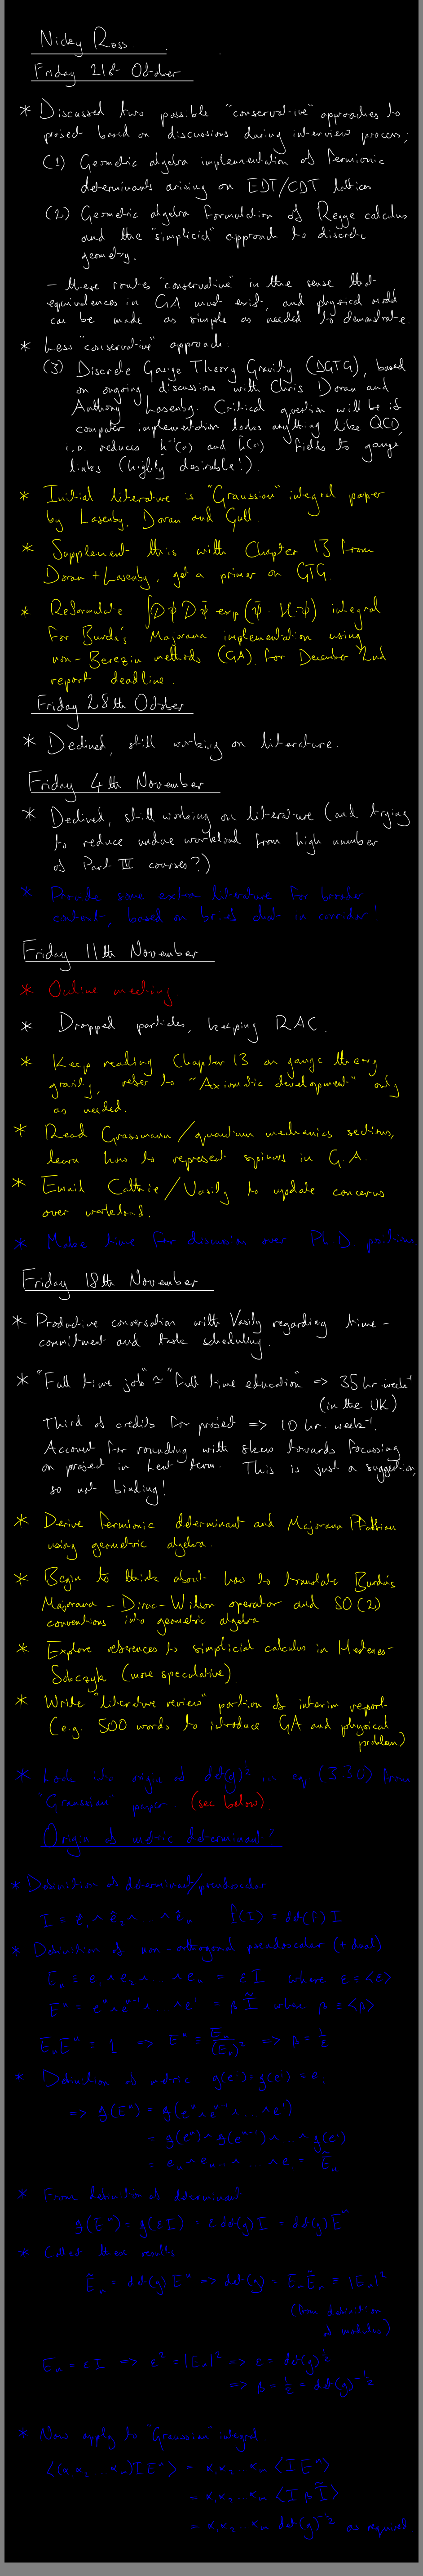 Nicky Ross
Friday 21st October
* Discussed two possible "conservative" approaches to
project based on discussions during interview process;
(1) Geometric algebra implementation of fermionic
determinants arising on EDT/CDT lattices
(2) Geometric algebra formulation of Regge calculus
and the "simplicial" approach to discrete
geometry.
- these routes "conservative" in the sense that
equivalences in GA must exist, and physical model
can be made as simple as needed to demonstrate.
* Less "conservative" approach:
(3) Discrete Gauge Theory Gravity (DGTG), based
on ongoing discussions with Chris Doran and
Anthony Lasenby. Critical question will be if
computer implementation looks anything like QCD,
i.e. reduces h⁻¹(a) and h̄(a) fields to gauge
links (highly desirable!).
* Initial literature is "Grassmann" integral paper
by Lasenby, Doran and Gull.
* Supplement this with Chapter 13 from
Doran + Lasenby, get a primer on GTG.
* Reformulate ∫Dψ Dψ̄ exp(ψ̄ · H · ψ) integral
for Burda's Majorana implementation using
non-Berezin methods (GA) for December 2nd
report deadline.
Friday 28th October
* Declined, still working on literature.
Friday 4th November
* Declined, still working on literature (and trying
to reduce undue workload from high number
of Part III courses?)
* Provide some extra literature for
based on brief chat in corridor!
Friday 11th November
* Online meeting.
* Dropped particles, keeping RAC.
* Keep reading Chapter 13 on gauge theory
gravity, refer to "Axiomatic development" only
as needed.
* Read Grassmann/quantum mechanics sections,
learn how to represent spinors in G.A.
* Email Cathie/Vasily to update concerns
over workload.
* Make time for discussion over PhD positions
Friday 18th November
* Productive conversation with Vasily regarding time-
commitment and task scheduling.
* "Full time job" ≃ "full time education" => 35 hr week⁻¹
(in the UK)
Third of credits for project => 10 hr week⁻¹.
Account for rounding with skew towards focussing
on project in Lent term. This is just a suggestion,
so not binding!
* Derive fermionic determinant and Majorana Pfaffian
using geometric algebra.
* Begin to think about how to translate Burda's
Majorana-Dirac-Wilson operator and SO(2)
conventions into geometric algebra
* Explore references to simplicial calculus in Hestenes-
Sobczyk (more speculative).
* Write "literature review" portion of interim report
(e.g. 500 words to introduce GA and physical
problem)
* Look into origin of det(g)^½ in eq (3.30) from
"Grassmann" paper (see below)
Origin of metric determinant?
* Definition of determinant/pseudoscalar
* Definition of non-orthogonal pseudoscalar (+ dual)
* Definition of metric
* From definition of determinant
* Collect these results
(from definition
of modulus)
* Now apply to "Grassmann" integral
as required